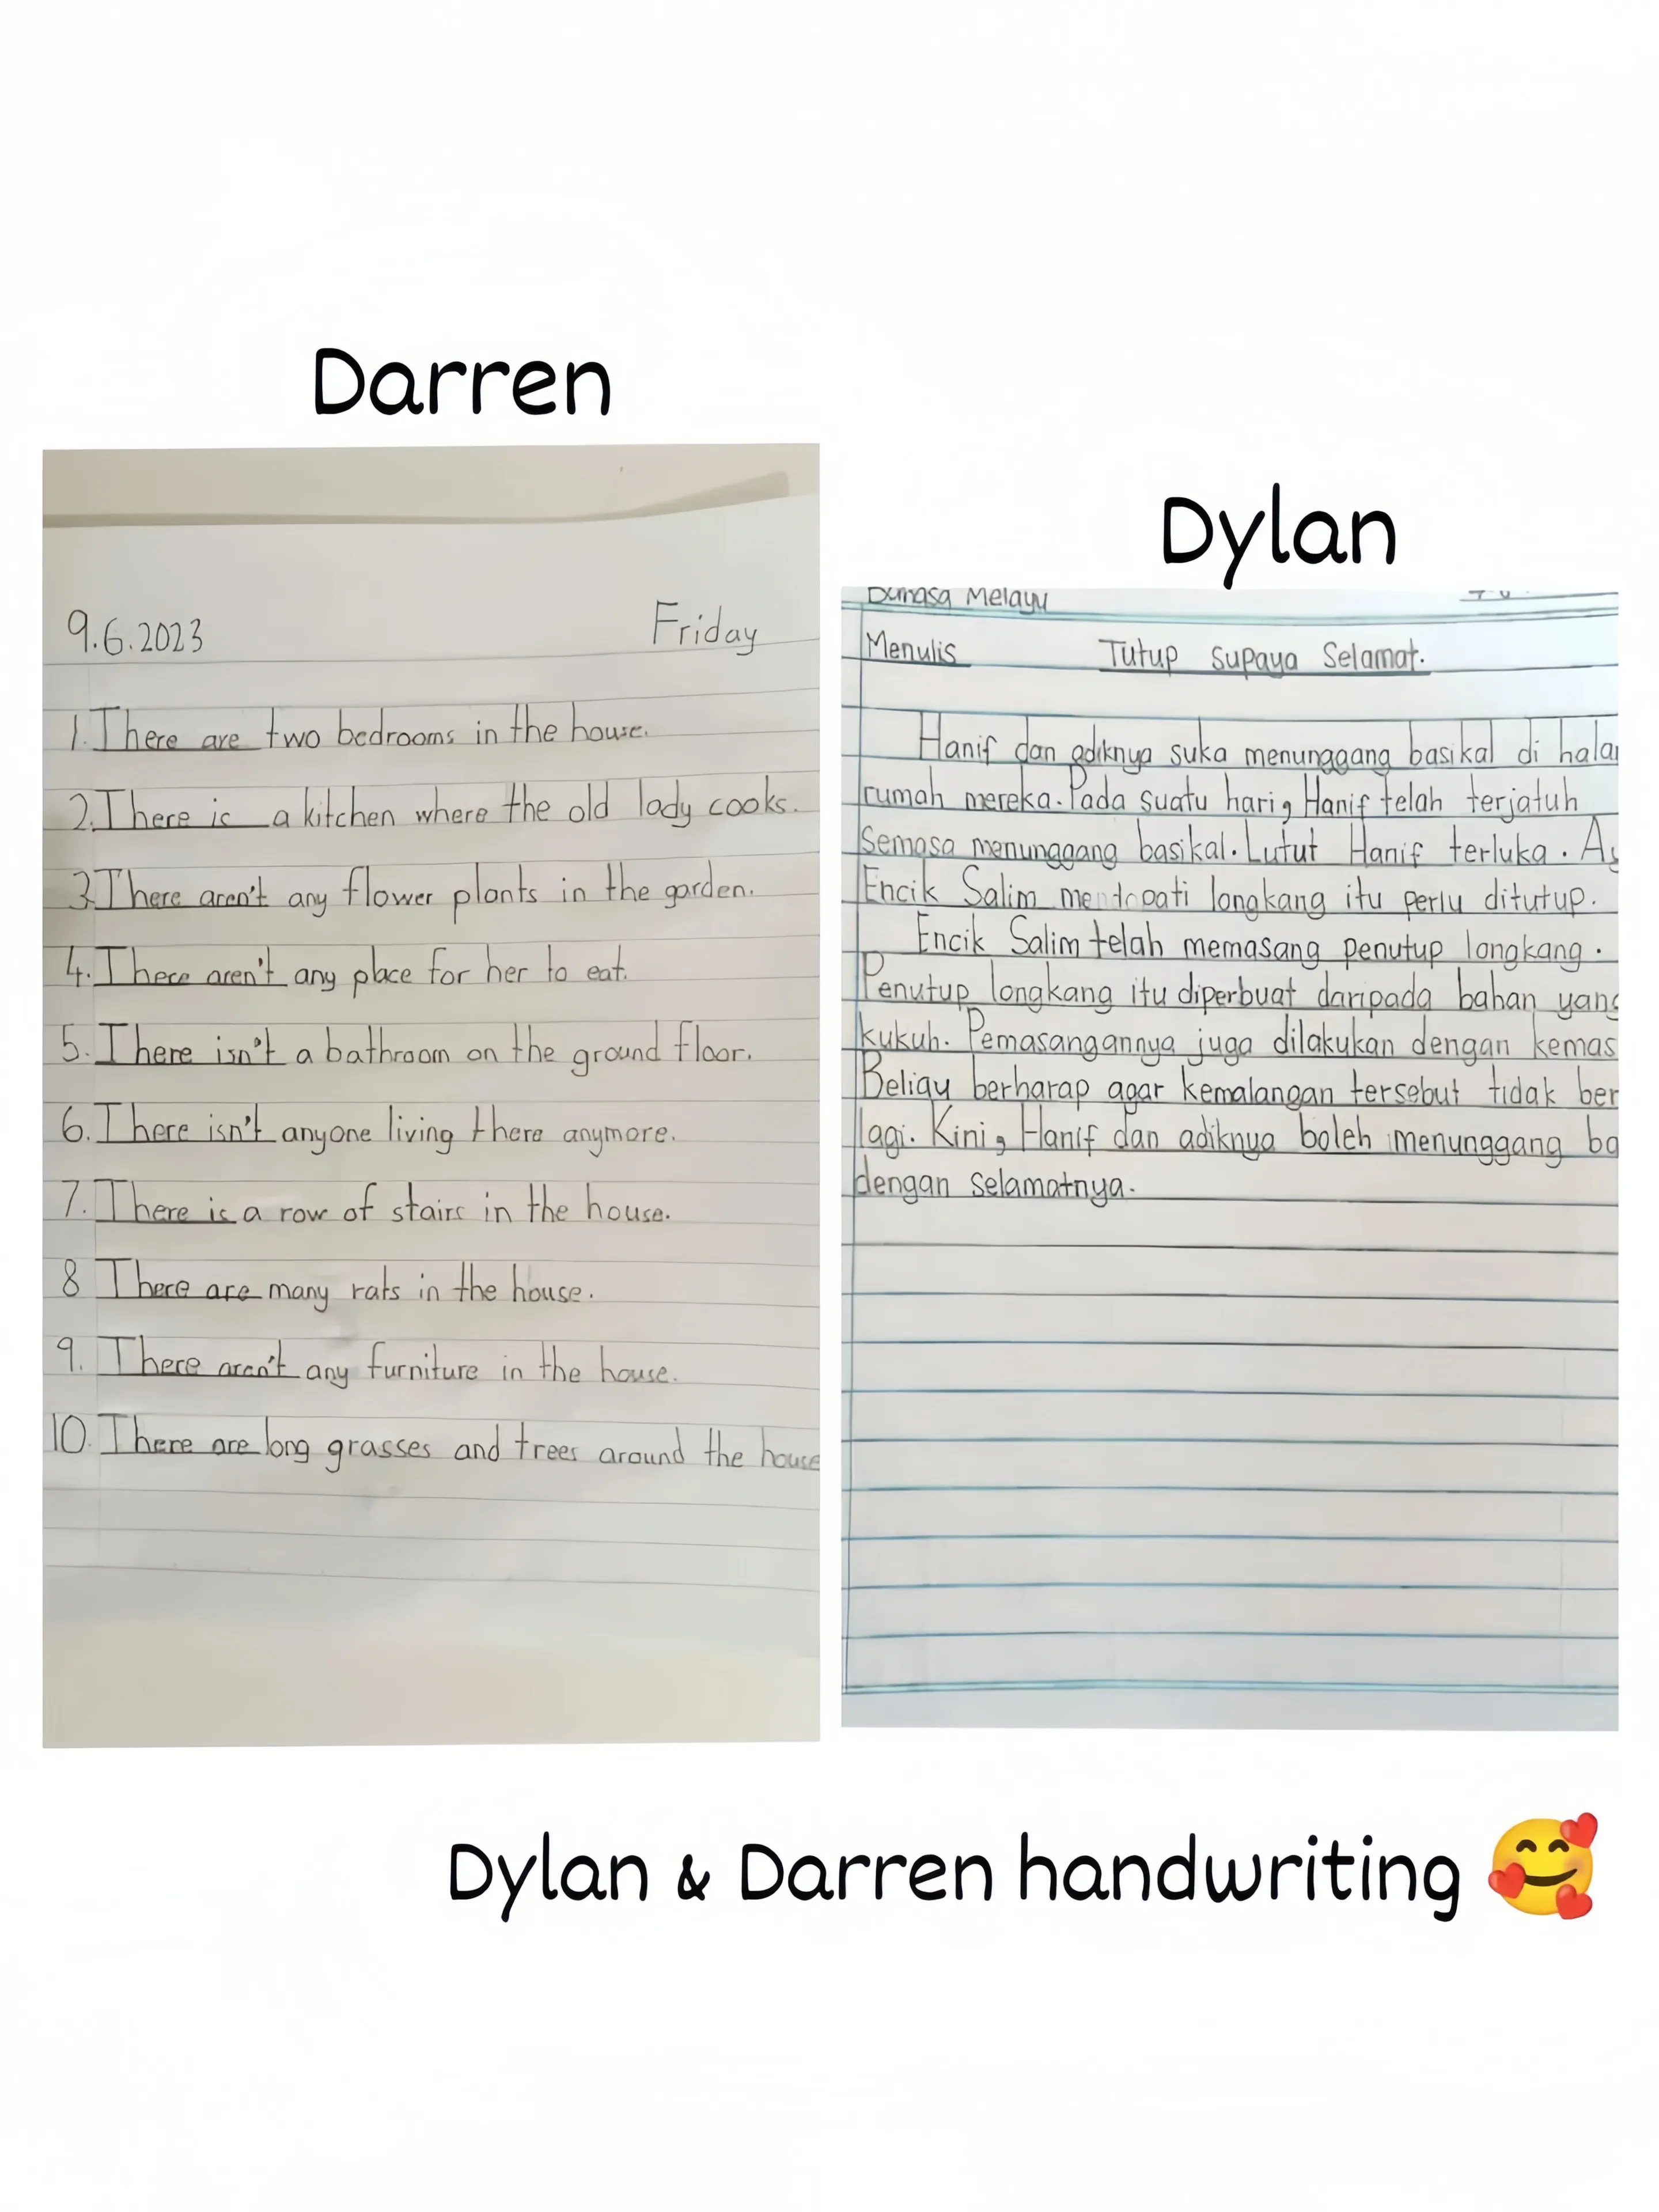 Darren
9.6.2023 Friday
1. There are two bedrooms in the house.
2. There is a kitchen where the old lady cooks.
3. There aren't any flower plants in the garden.
4. There aren't any place for her to eat.
5. There isn't a bathroom on the ground floor.
6. There isn't anyone living there anymore.
7. There is a row of stairs in the house.
8 There are many rats in the house.
9. There aren't any furniture in the house.
10. There are long grasses and trees around the house
Dylan
Bahasa Melayu
Menulis Tutup supaya Selamat.
Hanif dan adiknya suka menunggang basikal di
rumah mereka. Pada suatu hari, Hanif telah terjatuh
semasa menunggang basikal. Lutut Hanif terluka.
Encik Salim mendapati longkang itu perlu ditutup.
Encik Salim telah memasang penutup longkang.
Penutup longkang itu diperbuat daripada bahan yang
kukuh. Pemasangannya juga dilakukan dengan kemas
Beliau berharap agar kemalangan tersebut tidak ber
lagi. Kini, Hanif dan adiknya boleh menunggang ba
dengan selamatnya.
Dylan & Darren handwriting 🥰